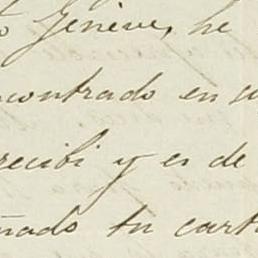 Genève, he
contrado en su
recibi y es de
ñado tu carta